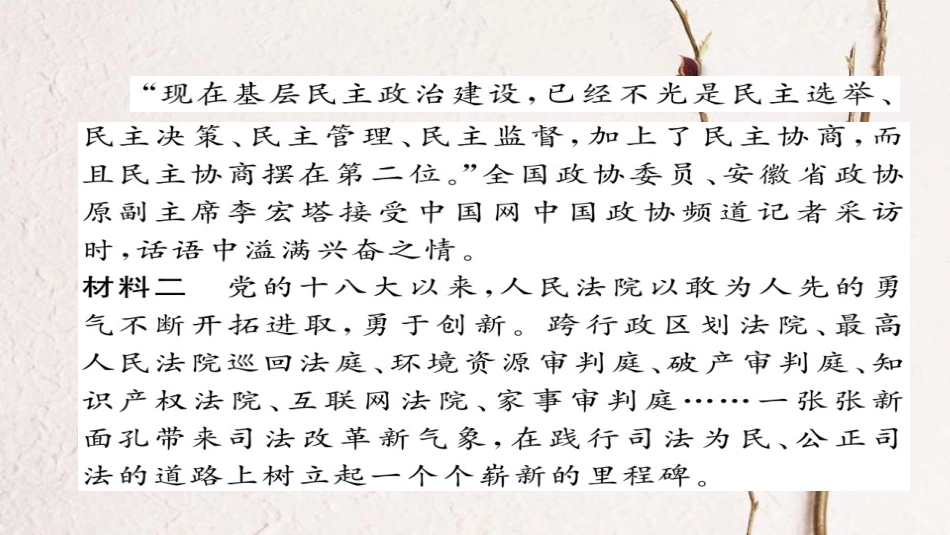 “现在基层民主政治建设,已经不光是民主选举、
民主决策、民主管理、民主监督,加上了民主协商,而
且民主协商摆在第二位。”全国政协委员、安徽省政协
原副主席李宏塔接受中国网中国政协频道记者采访
时,话语中溢满兴奋之情。
材料二 党的十八大以来,人民法院以敢为人先的勇
气不断开拓进取,勇于创新。跨行政区划法院、最高
人民法院巡回法庭、环境资源审判庭、破产审判庭、知
识产权法院、互联网法院、家事审判庭……一张张新
面孔带来司法改革新气象,在践行司法为民、公正司
法的道路上树立起一个个崭新的里程碑。